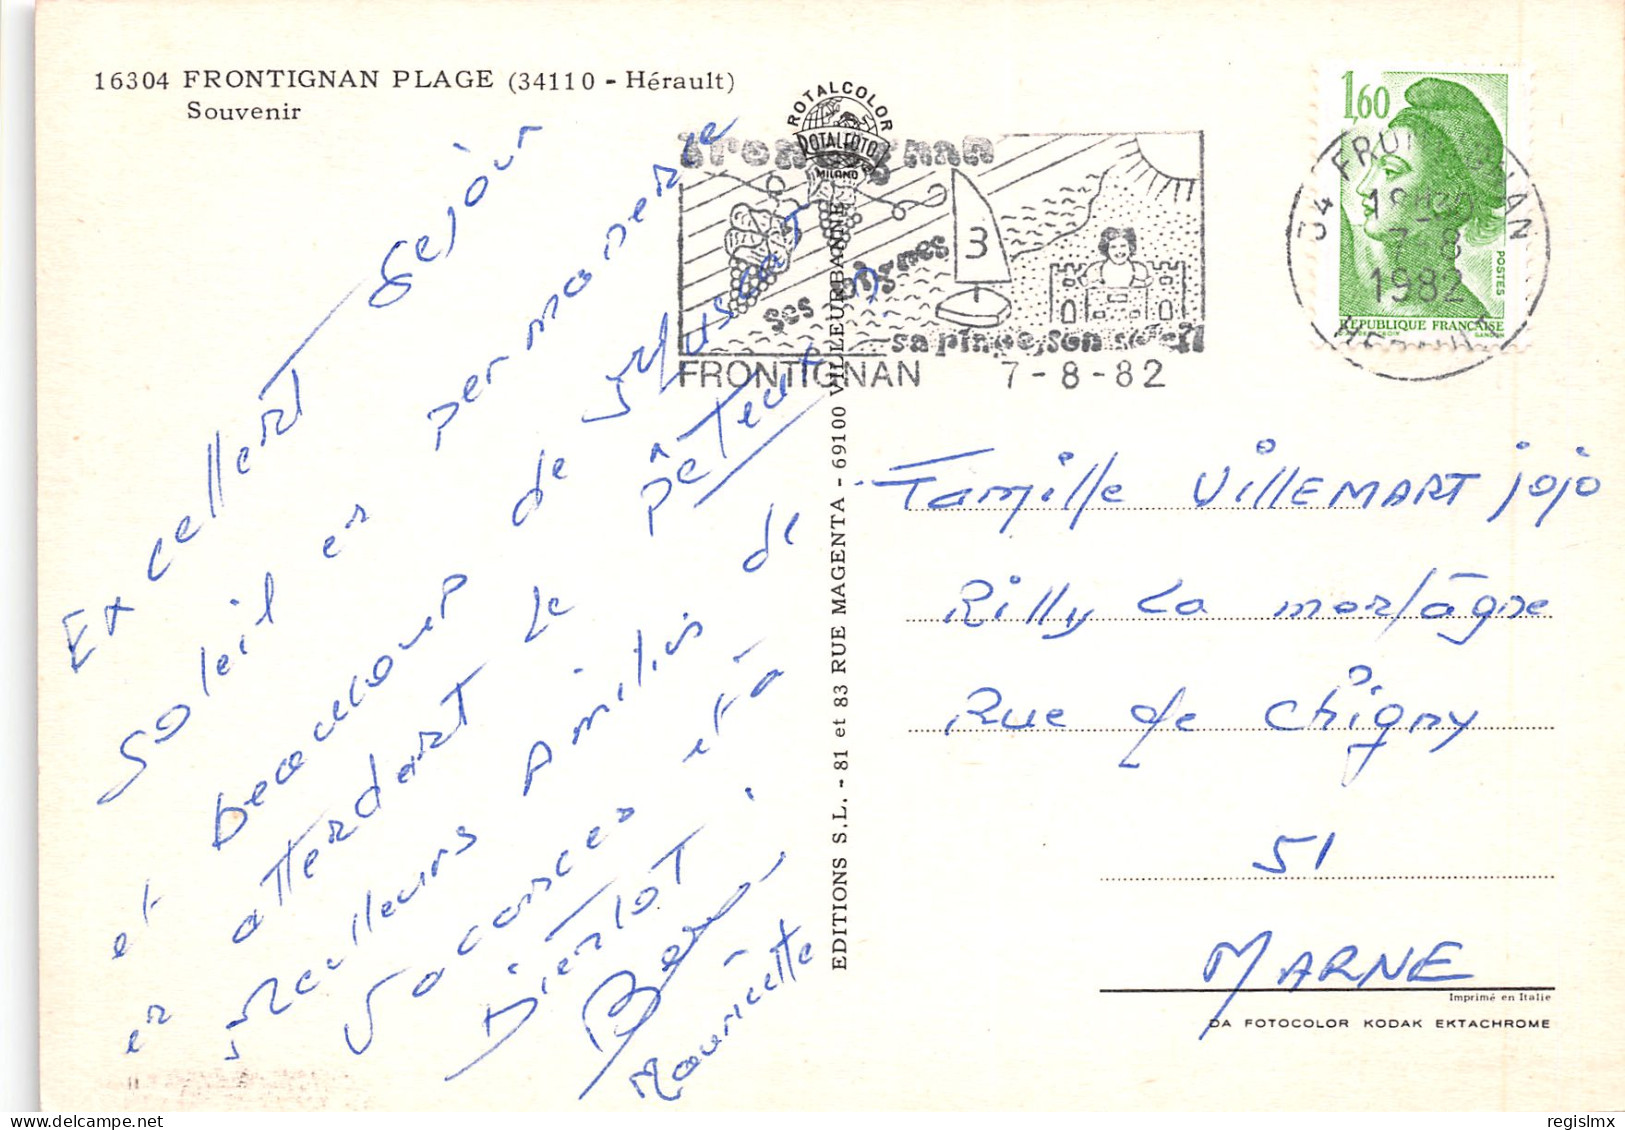 16304 FRONTIGNAN PLAGE (34110 - Hérault)
Souvenir
ROTALCOLOR
ROTALFOTO
MILANO
ses vignes
3
sa plage, son soleil
FRONTIGNAN 7-8-82
1,60
POSTES
REPUBLIQUE FRANCAISE
34 FRONTIGNAN
7-8
1982
HERAULT
Excellent séjour
Soleil en permanence
et beaucoup de Muscat
en attendant le pâteux
Meilleurs Amitiés de
Vacances et à
Bientôt
Mauricette
EDITIONS S.L. - 81 et 83 RUE MAGENTA - 69100 VILLEURBANNE
Famille VILLEMART jojo
Rilly La montagne
Rue de Chigny
51
MARNE
Imprimé en Italie
DA FOTOCOLOR KODAK EKTACHROME
regislmx